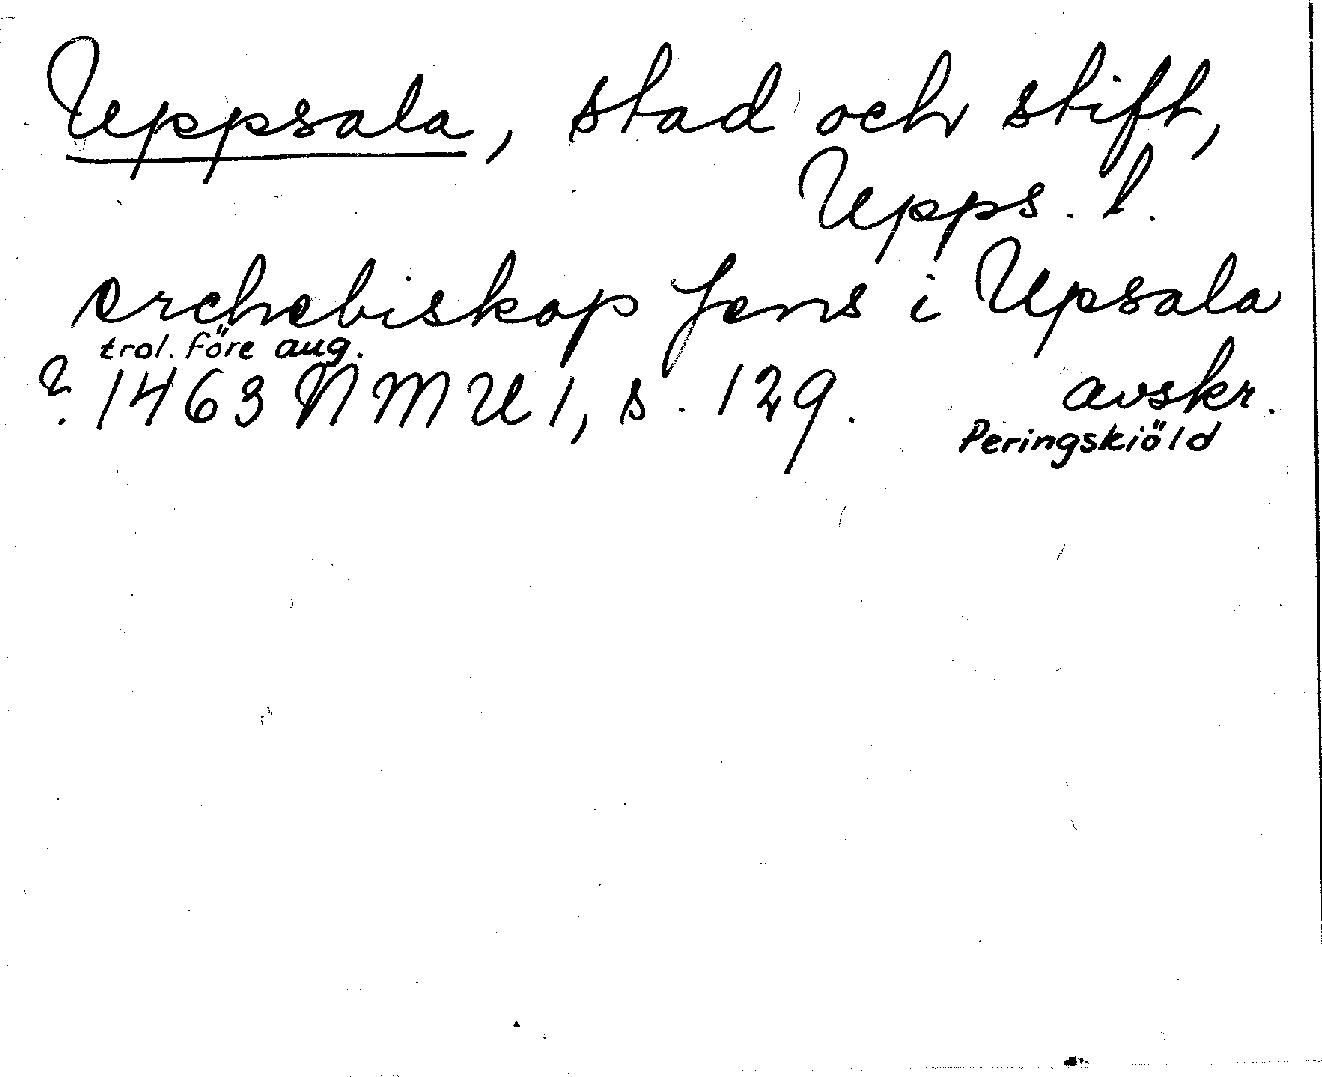 Uppsala, stad och stift,
Upps. l.
erchebiskop Jens i Upsala
trol. före aug.
? 1463 NMU 1, s. 129. avskr.
Peringskiöld